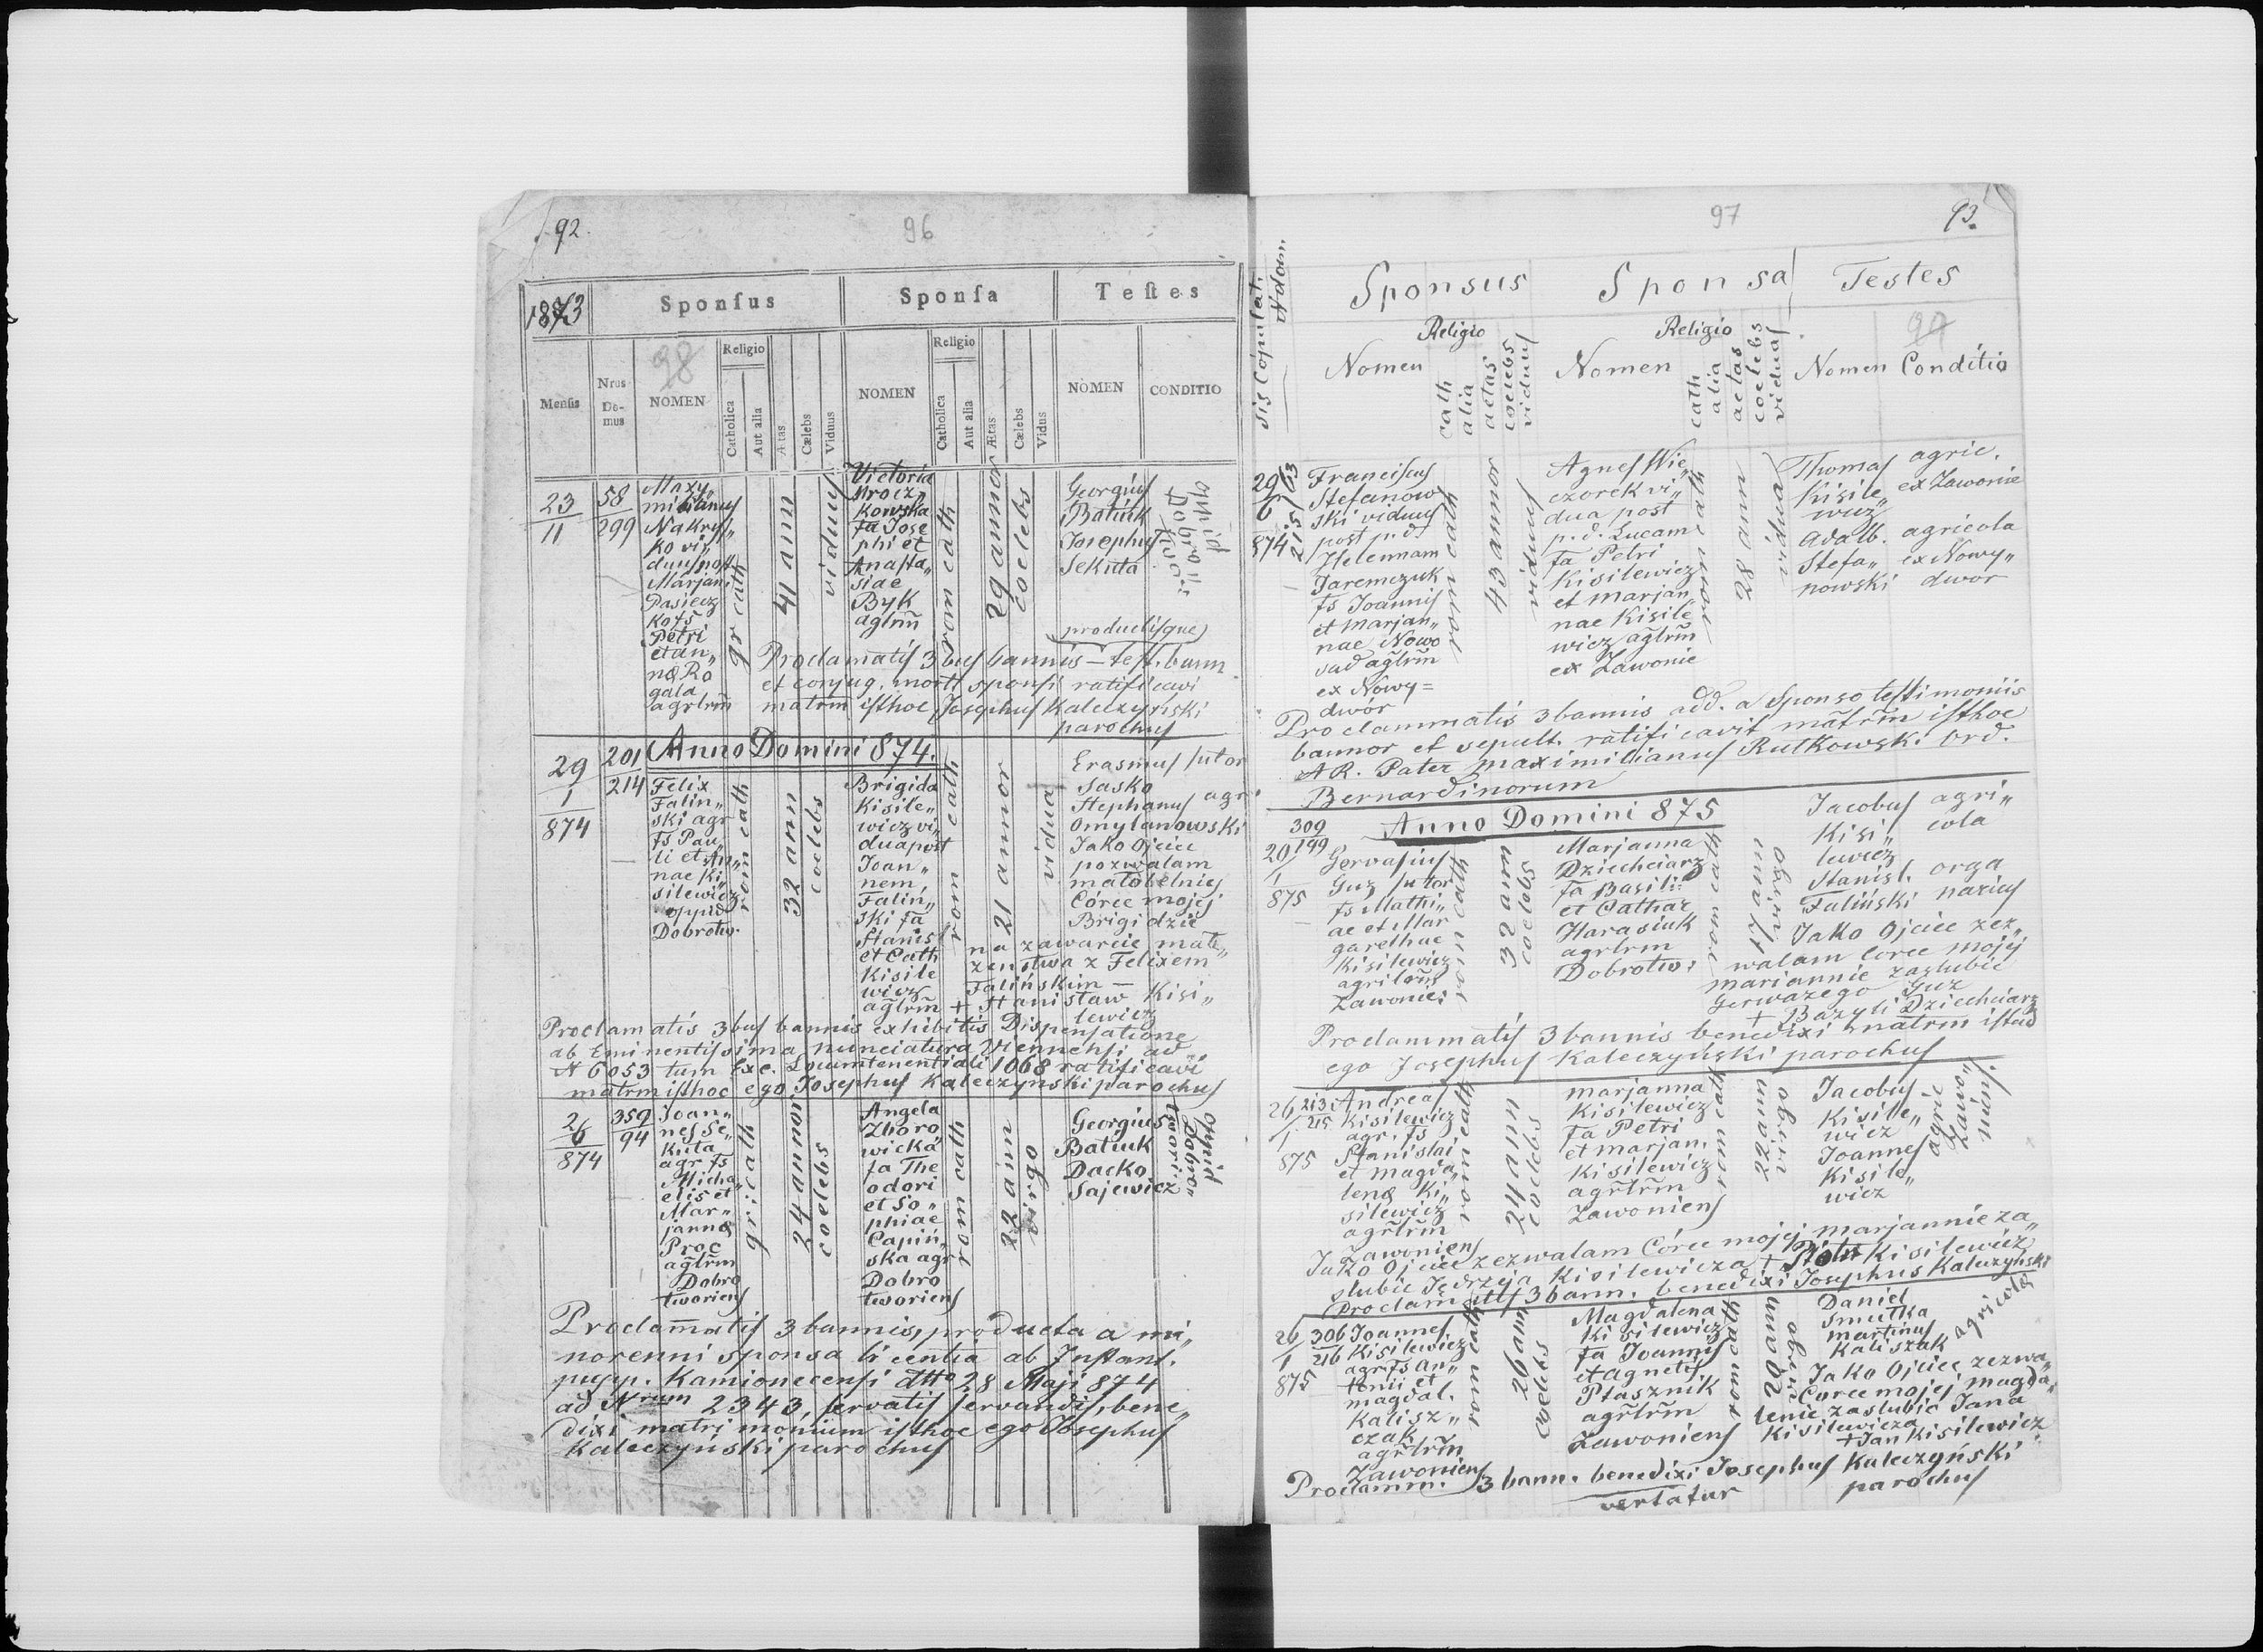 92.
96
1873
Sponsus
Sponsa
Testes
Mensis
Nrus Domus
98
NOMEN
Religio
Catholica
Aut alia
Ætas
Cælebs
Viduus
NOMEN
Religio
Catholica
Aut alia
Ætas
Cælebs
Vidus
NOMEN
CONDITIO
23
11
58
299
Maxy„
milianus
Nakryſ„
ko vi„
duus post
Marjan
Pasiecz
ko fs
Petri
et An„
næ Ro
gala
agrlrm̃
gr cath
41 ann
viduus
Victoria
Krocz„
kowska
fa Jose
phi et
Anasta„
siae
Byk
agtrm̃
rom cath
29 annor
coelebs
Georgius
Batiuk
Josephus
Sekuta
oppid
Dobro„
twor:
productisque
Proclamatis 3bus bannis – test. bann
et conjug. mort. sponsi ratificavi
matrm isthoc Josephus Kaleczyński
parochus
Anno Domini 874.
29
1
874
201
214
Felix
Falin„
ski agr
fs Pau„
li et An„
nae Ki„
silewicz
oppid
Dobrotw.
rom cath
32 ann
coelebs
Brigida
Kisile„
wicz vi„
dua post
Joan„
nem
Falin„
ski fa
Stanisl
et Cath
Kisile
wicz
agtrm̃
rom cath
21 annor
vidua
Erasmus sutor
Sasko
Stephanus agr.
Omylanowski
Jako Ojciec
pozwalam
małoletniej
Córce mojej
Brigidzie
na zawarcie małż„
żeństwa z Felixem
Falińskim –
+ Stanisław Kisi„
lewicz
Proclamatis 3bus bannis exhibitis Dispensatione
ab Eminentissima nunciatura Viennensi ad
N 6053 tum Exc. Locumtenentiali 1068 ratificavi
matrm isthoc ego Josephus Kaleczyński parochus
2
6
874
359
94
Joan„
nes Se„
kuta
agr. fs
Micha„
elis et
Mar„
jannæ
Proc
agtrm
Dobro
tworiens
gr: cath
24 annor
coelebs
Angela
Zboro
wicka
fa The
odori
et So„
phiae
Capiń„
ska agr
Dobro
tworiens
rom cath
22 ann
virgo
Georgius
Batiuk
Dacko
Sajewicz
Oppid
Dobro„
tworien
Proclam̃atis 3 bannis, producta a mi„
norenni sponsa licentia ab Instant.
pupp. Kamionecensi dtto 28 Maji 874
ad Nrum 2343, servatis servandis, bene„
dixi matrimonium isthoc ego Josephus
Kaleczyński parochus
97
93.
sis Copulati
N dom.
Sponsus
Sponsa
Testes
Nomen
Religio
cath
alia
aetas
coelebs
viduus
Nomen
Religio
cath
alia
aetas
coelebs
viduas
97
Nomen
Conditio
29
6
874
63
215
Franciscus
Stefanow
ski viduus
post p. d.
Helennam
Jaremczuk
fs Joannis
et Marjan„
nae Nowo
sad agtrm̃
ex Nowy=
dwór
rom cath
43 annor
viduus
Agnes Wie„
czorek vi„
dua post
p. d. Lucam
fa Petri
Kisilewicz
et Marjan„
nae Kisile
wicz agtrm̃
ex Zawonie
rom cath
28 ann
vidua
Thomas
Kisile„
wicz
Adalb.
Stefa„
nowski
agric.
ex Zawonie
agricola
ex Nowy„
dwor
Proclammatis 3 bannis add. a Sponso testimoniis
bannor et sepult. ratificavit matrm̃ isthoc
AR. Pater Maximilianus Rutkowski Ord.
Bernardinorum
Anno Domini 875
20
1
875
309
199
Gervasius
Guz sutor
fs Mathi„
ae et Mar
garethae
Kisilewicz
agrilrm̃
Zawonie:
rom cath
32 ann
coelebs
Marjanna
Dziechciarz
fa Basili:
et Cathar
Harasiuk
agrlrm
Dobrotw:
rom cath
17 ann
virgo
Jacobus
Kisi„
lewicz
Stanisl.
Faliński
agri„
cola
orga
narius
Jako Ojciec zez„
walam Corce mojej
Mariannie zaslubić
Gerwazego Guz
+ Bazyli Dziechciarz
Proclammatis 3 bannis benedixi matrm istud
ego Josephus Kaleczyński parochus
26
1
875
213
215
Andreas
Kisilewicz
agr. fs
Stanislai
et Magda„
lenæ Ki„
silewicz
agrlrm
Zawoniens
rom cath
24 ann
coelebs
Marjanna
Kisilewicz
fa Petri
et Marjan.
Kisilewicz
agrlrm̃
Zawoniens
rom cath
22 ann
virgo
Jacobus
Kisile„
wicz
Joannes
Kisile„
wicz
agric
Zawo„
niens.
Jako Ojciec zezwalam Córce mojej Marjannie za„
slubić Jędrzeja Kisilewicza + Piotr Kisilewicz
Proclamatis 3 bann. benedixi Josephus Kaleczyński
26
1
875
306
216
Joannes
Kisilewicz
agr. fs An„
tonii et
Magdal.
Kalisz„
czak
agrlrm̃
Zawoniens
rom cath
26 ann
coelebs
Magdalena
Kisilewicz
fa Joannis
et Agnetis
Ptasznik
agrlrm̃
Zawoniens
rom cath
20 ann
virgo
Daniel
Smutka
Martinus
Kaliszak
agricolæ
Jako Ojciec zezwa„
Corce mojej Magda„
lenie zaslubić Jana
Kisilewicza
+ Jan Kisilewicz
Proclamm. 3 bann. benedixi Josephus Kaleczyński
vertatur
parochus